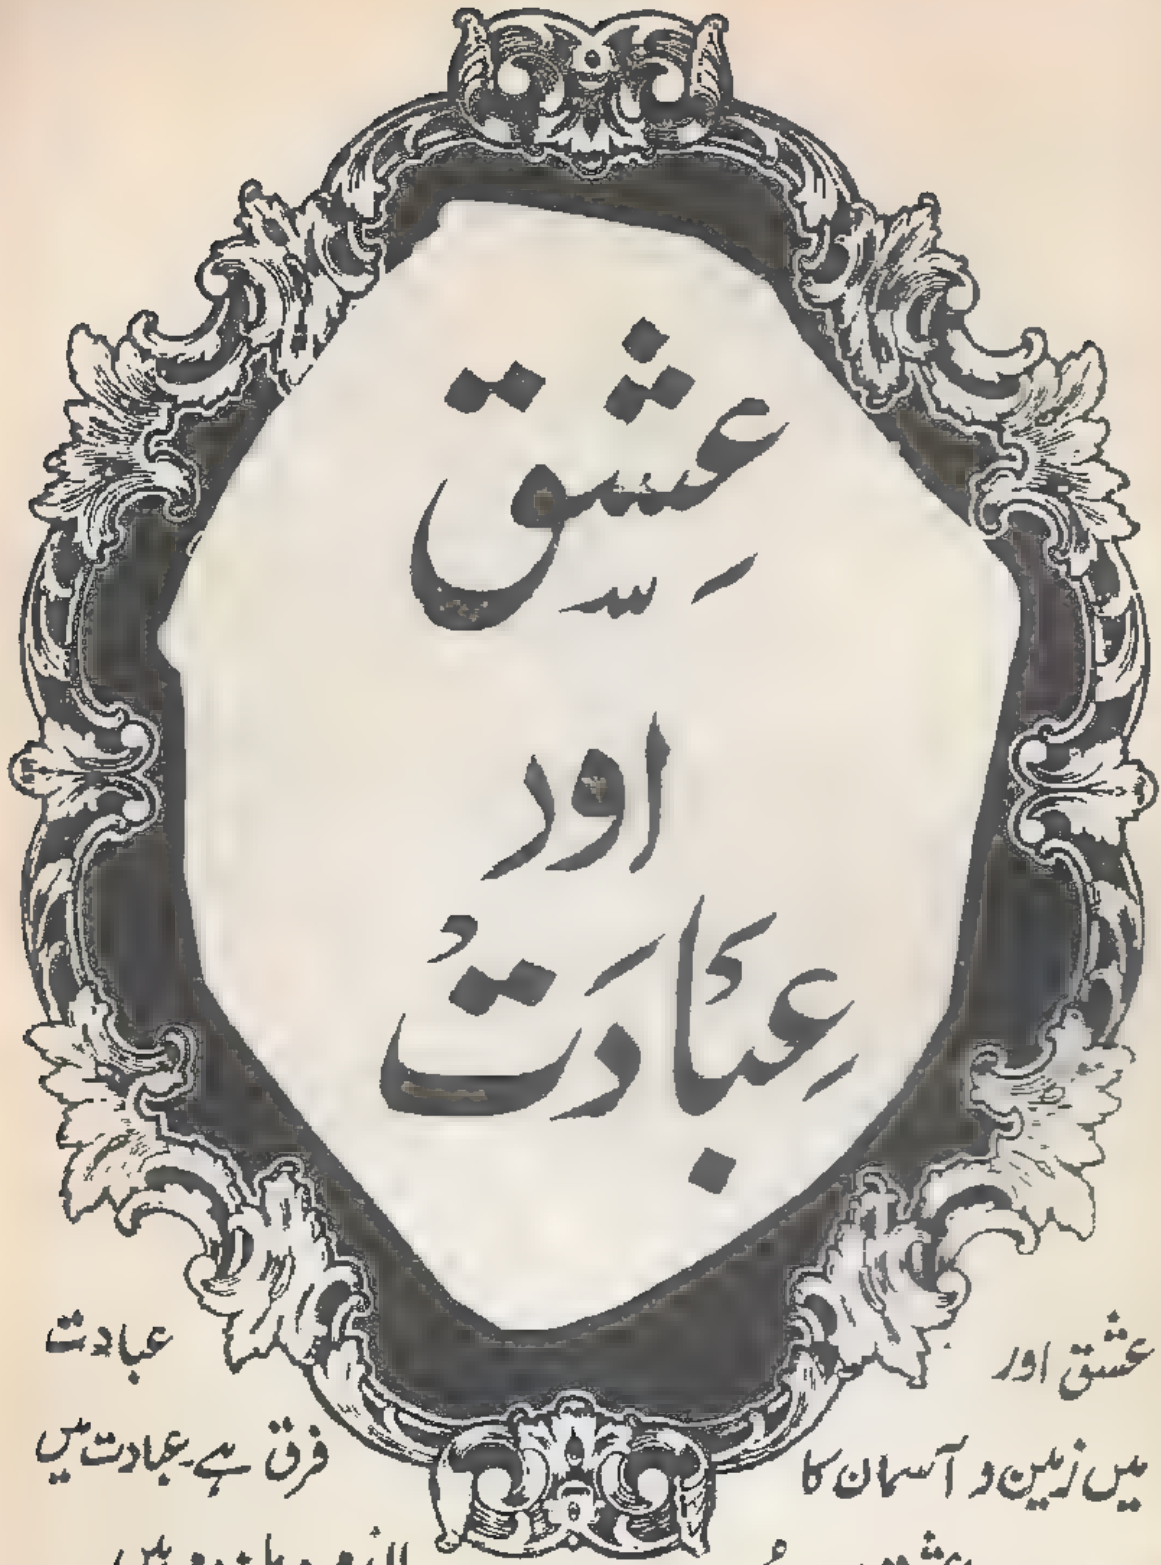 عِشق
اور
عِبَادَتْ
عشق اور عبادت
میں زمین و آسمان کا فرق ہے۔ عبادت میں